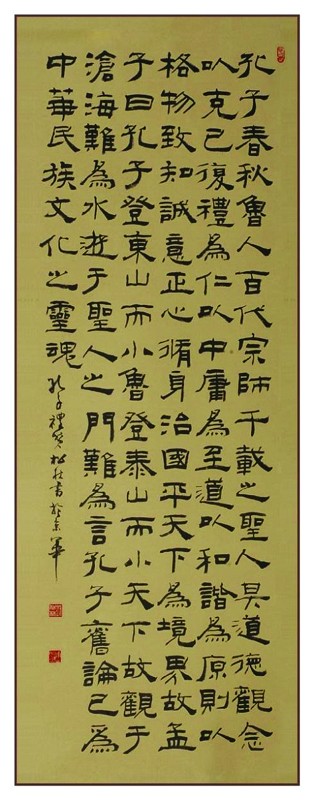 孔子春秋魯人百代宗師千載之聖人其道德觀念
以克己復禮為仁以中庸為至道以和諧為原則以
格物致知誠意正心脩身治國平天下為境界故孟
子曰孔子登東山而小魯登泰山而小天下故觀于
滄海難為水遊于聖人之門難為言孔子舊論已為
中華民族文化之靈魂 孔子禮贊 書於京華